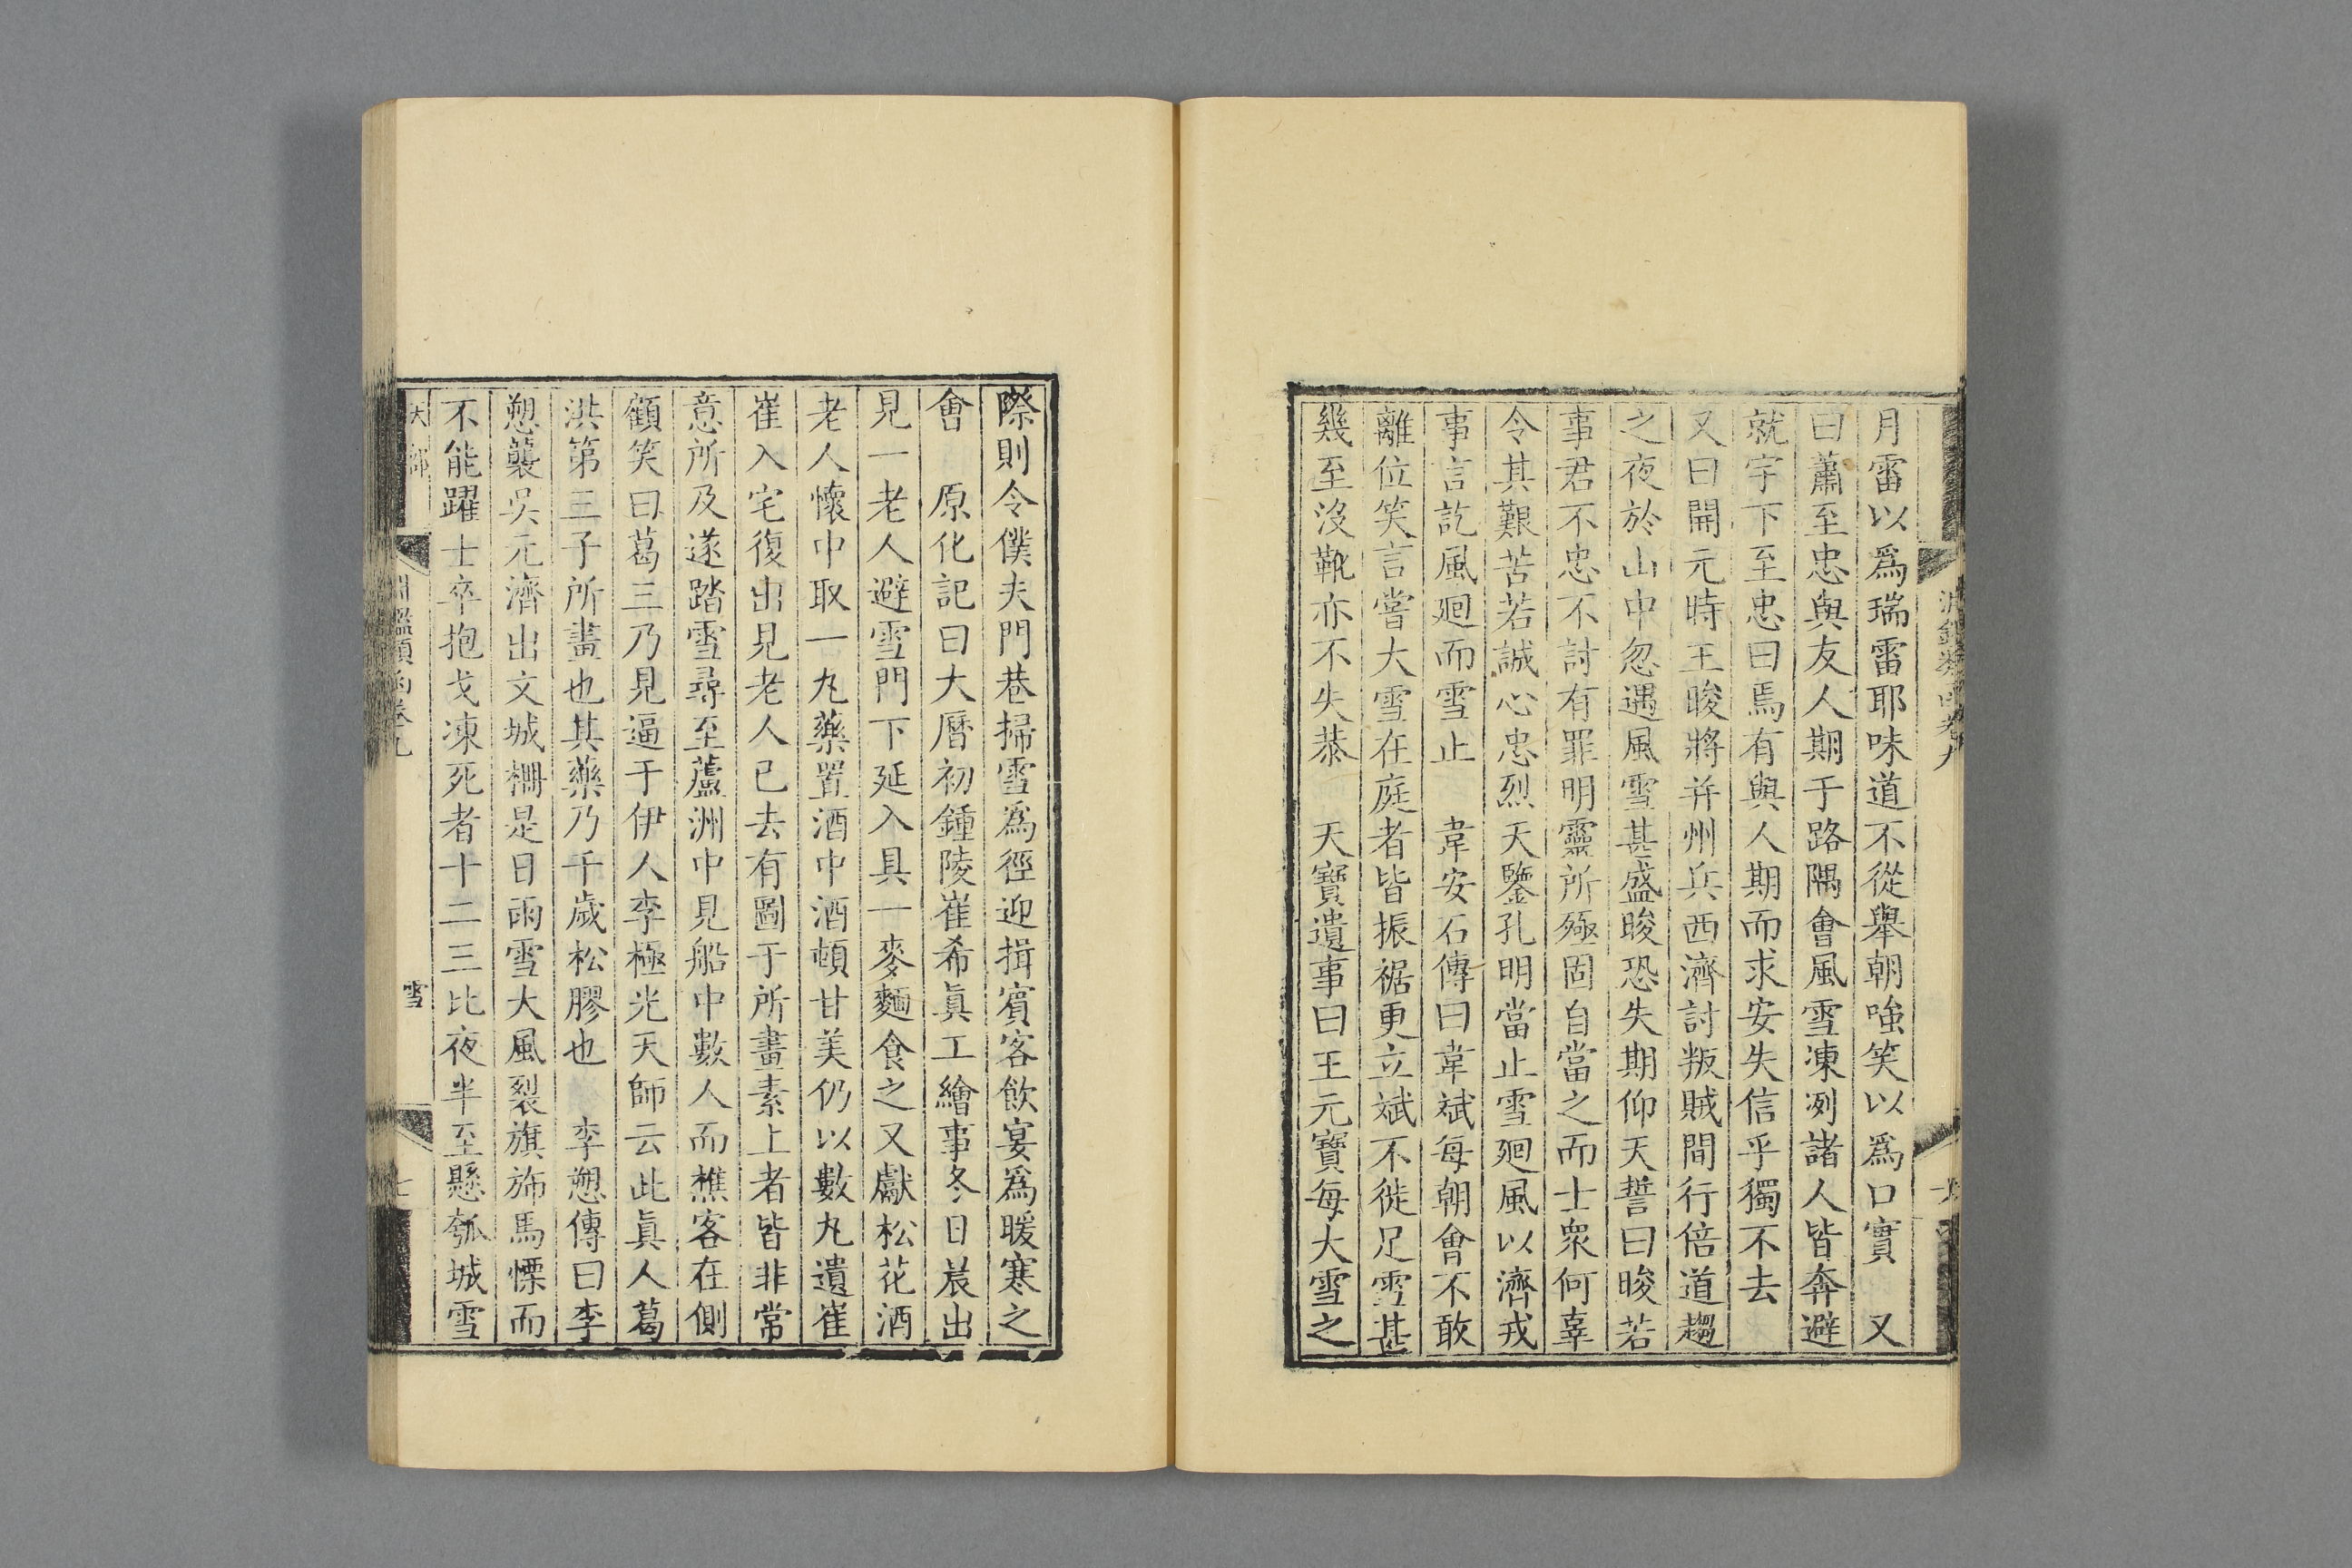 月雷以爲瑞雷耶味道不從舉朝嗤笑以爲口實　又
曰蕭至忠與友人期于路隅會風雪凍冽諸人皆奔避
就宇下至忠曰焉有與人期而求安失信乎獨不去
又曰開元時王晙將并州兵西濟討叛賊間行倍道趨
之夜於山中忽遇風雪甚盛晙恐失期仰天誓曰晙若
事君不忠不討有罪明靈所殛固自當之而士衆何辜
令其艱苦若誠心忠烈天鑒孔明當止雪廻風以濟戎
事言訖風廻而雪止　韋安石傳曰韋斌每朝會不敢
離位笑言嘗大雪在庭者皆振裾更立斌不徙足雪甚
幾至沒靴亦不失恭　天寶遺事曰王元寶每大雪之
際則令僕夫門巷掃雪爲徑迎揖賓客飲宴爲暖寒之
會　原化記曰大曆初鍾陵崔希眞工繪事冬日晨出
見一老人避雪門下延入具一麥麵食之又獻松花酒
老人懷中取一丸藥置酒中酒頓甘美仍以數丸遺崔
崔入宅復出見老人已去有圖于所畫素上者皆非常
意所及遂踏雪尋至蘆洲中見船中數人而樵客在側
顧笑曰葛三乃見逼于伊人李極光天師云此眞人葛
洪第三子所畫也其藥乃千歲松膠也　李愬傳曰李
愬襲吳元濟出文城柵是日雨雪大風裂旗斾馬慄而
不能躍士卒抱戈凍死者十二三比夜半至懸瓠城雪
天部
淵鑑類函卷九
雪